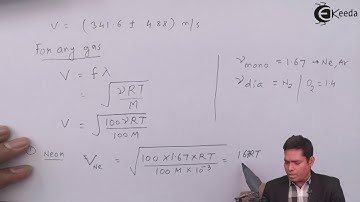 Ekeeda
V = (341.6 ± 4.88) m/s
For any gas
V = fλ
= √(γRT / M)
V = √(100γRT / 100M)
γ mono = 1.67 → Ne, Ar
γ dia = N₂ / O₂ = 1.4
① Neon V Ne = √(100 × 1.67 × RT / 100 M × 10⁻³) = 1.67RT